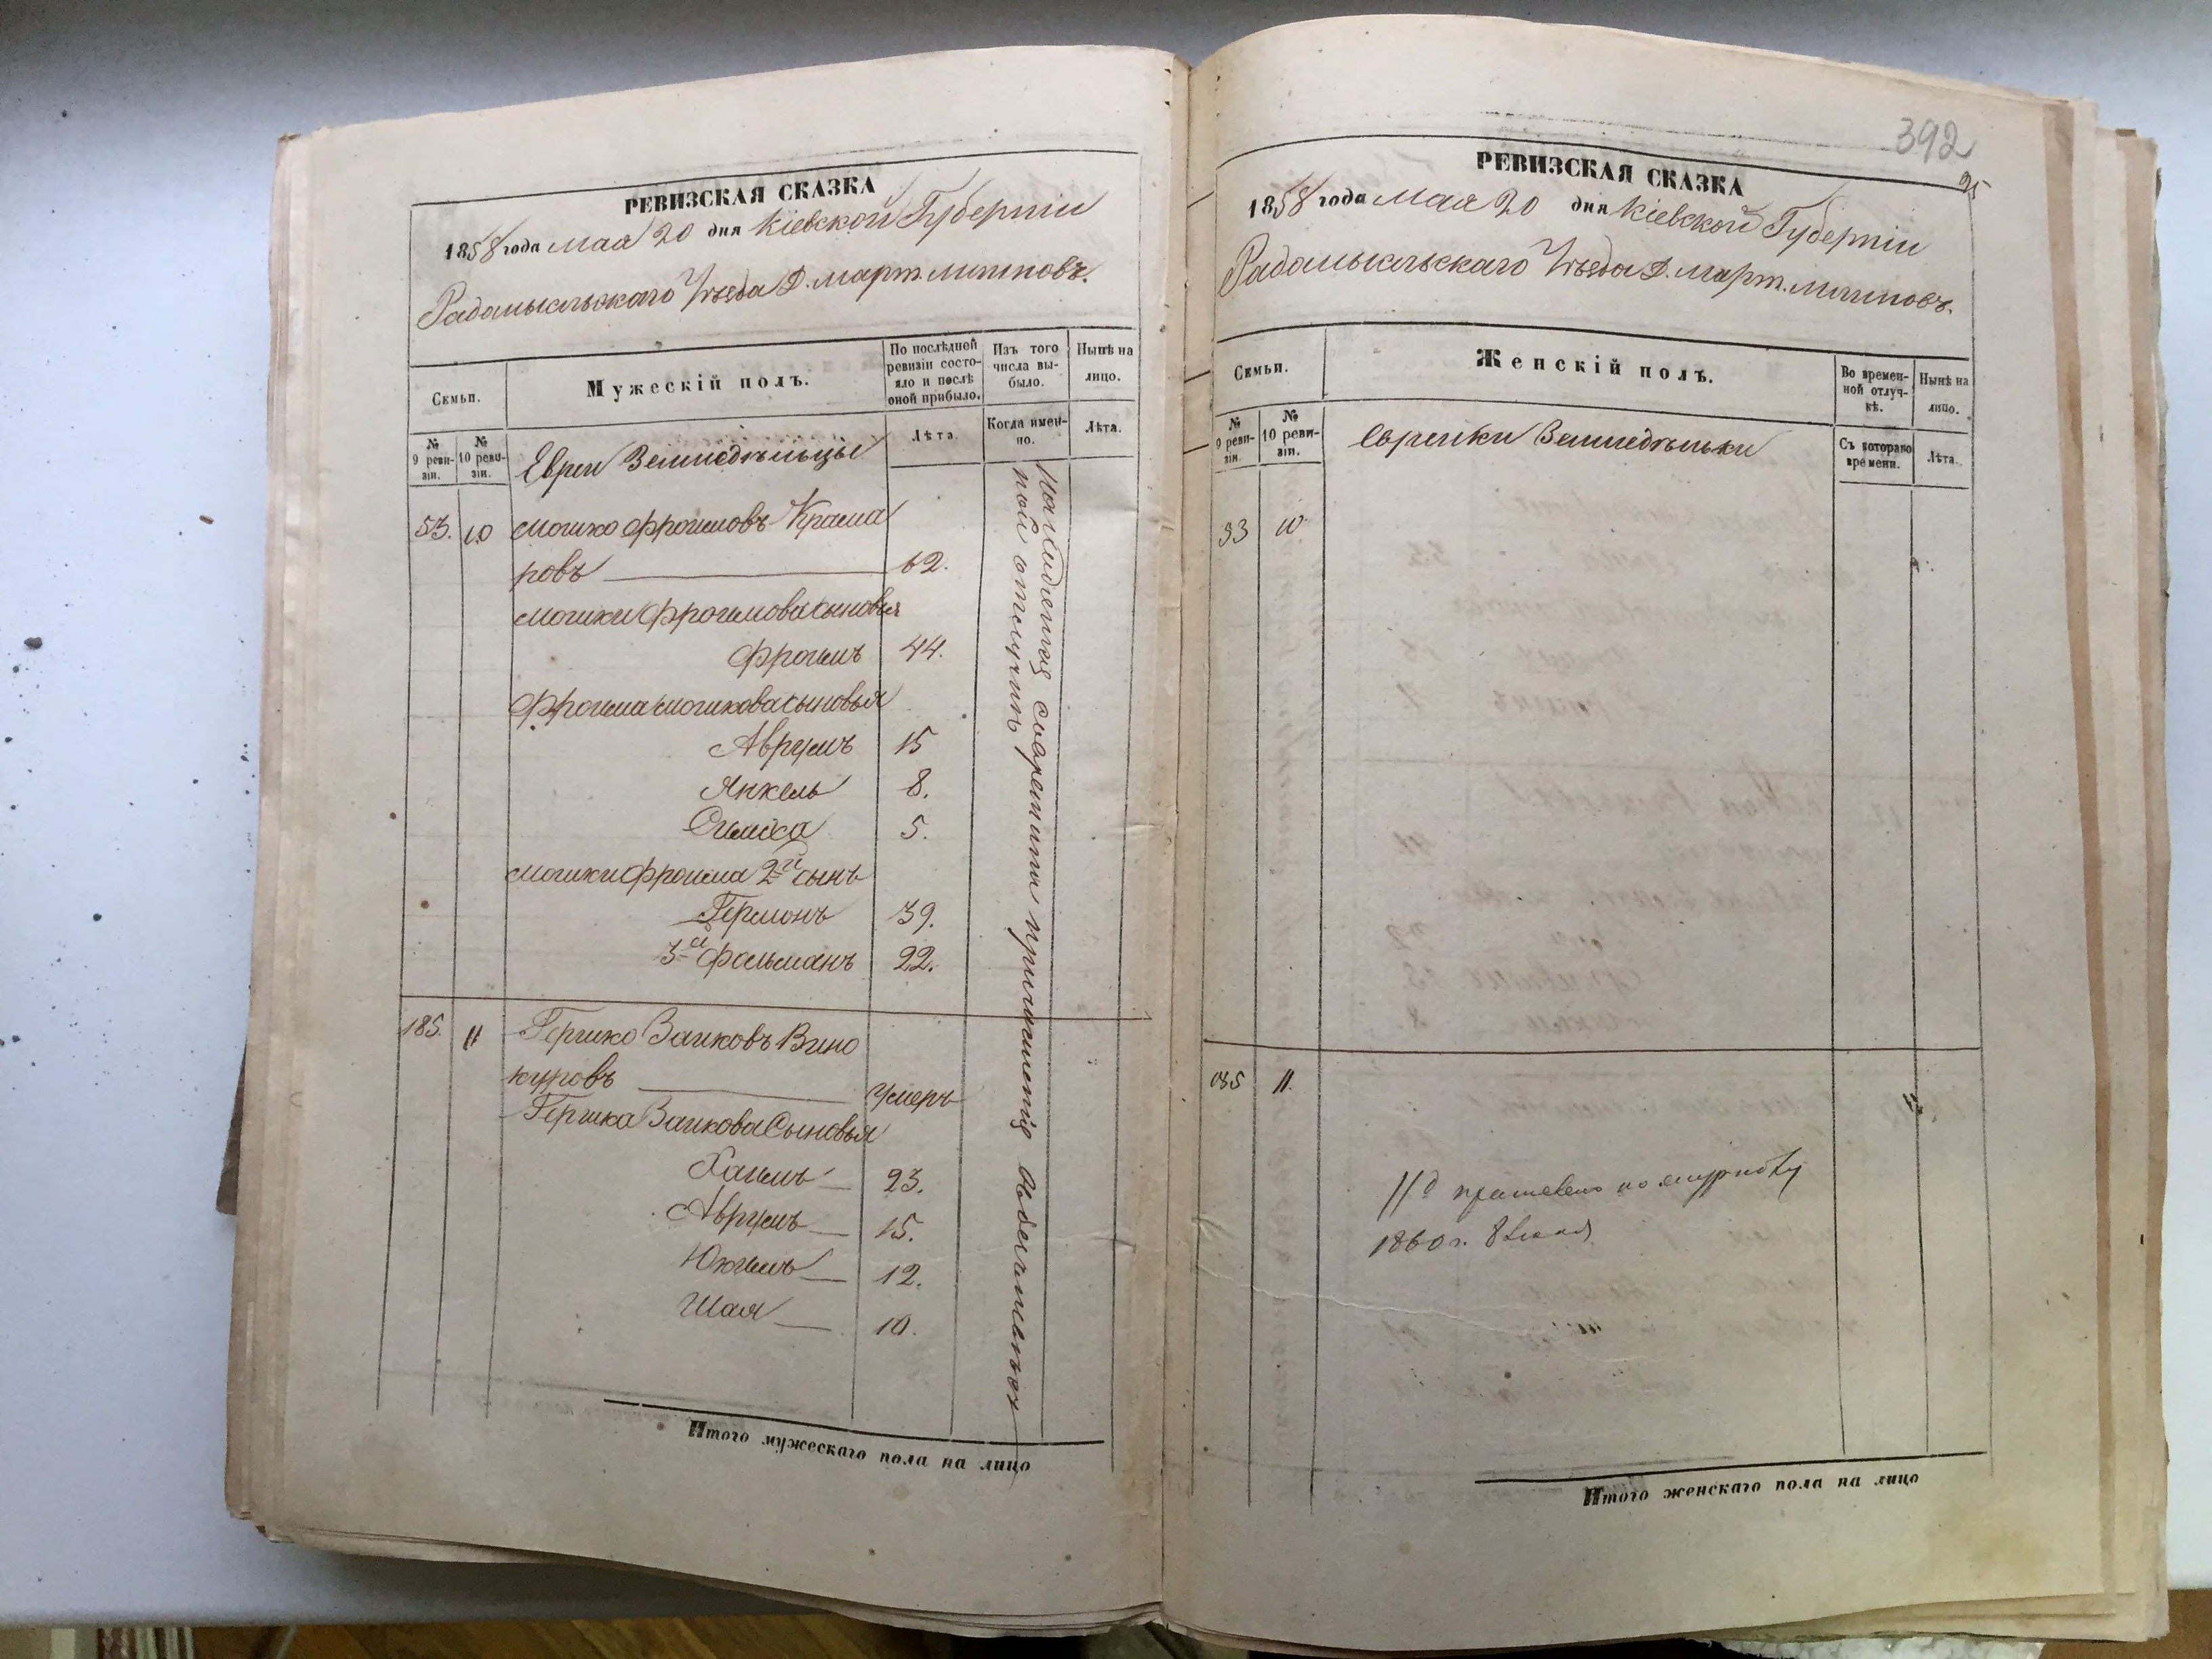 РЕВИЗСКАЯ СКАЗКА
1858 года мая 20 дня Кіевской Губерніи
Радомысльскаго Уѣзда Д. Март.
Семьи.
Мужескій полъ.
По послѣдней ревизіи состояло и послѣ оной прибыло.
Изъ того числа выбыло.
Нынѣ на лицо.
№ 9 ревизіи.
№ 10 ревизіи.
Лѣта.
Когда именно.
Лѣта.
Евреи Земледѣльцы
53. 10 Мошко Фроимовъ Крама
ровъ 62.
Мошки Фроимова сыновья
Фроимъ 44.
Фроима Мошкова сыновья
Аврумъ 15
Янкель 8.
Симха 5.
Мошки Фроима 2й сынъ
Гермонъ 39.
3й Фольманъ 22.
185. 11 Гершко Заиковъ Вино
куровъ Умеръ
Гершка Заикова Сыновья
Хаимъ 23.
Аврумъ 15.
Юкимъ 12.
Шая 10.
Итого мужескаго пола на лицо
392
25
РЕВИЗСКАЯ СКАЗКА
1858 года мая 20 дня Кіевской Губерніи
Радомысльскаго Уѣзда Д. Март.
Семьи.
Женскій полъ.
Во временной отлучкѣ.
Нынѣ на лицо.
№ 9 ревизіи.
№ 10 ревизіи.
Съ котораго времени.
Лѣта.
Еврейки Земледѣльки
53 10
185 11.
1860 г.
Итого женскаго пола на лицо